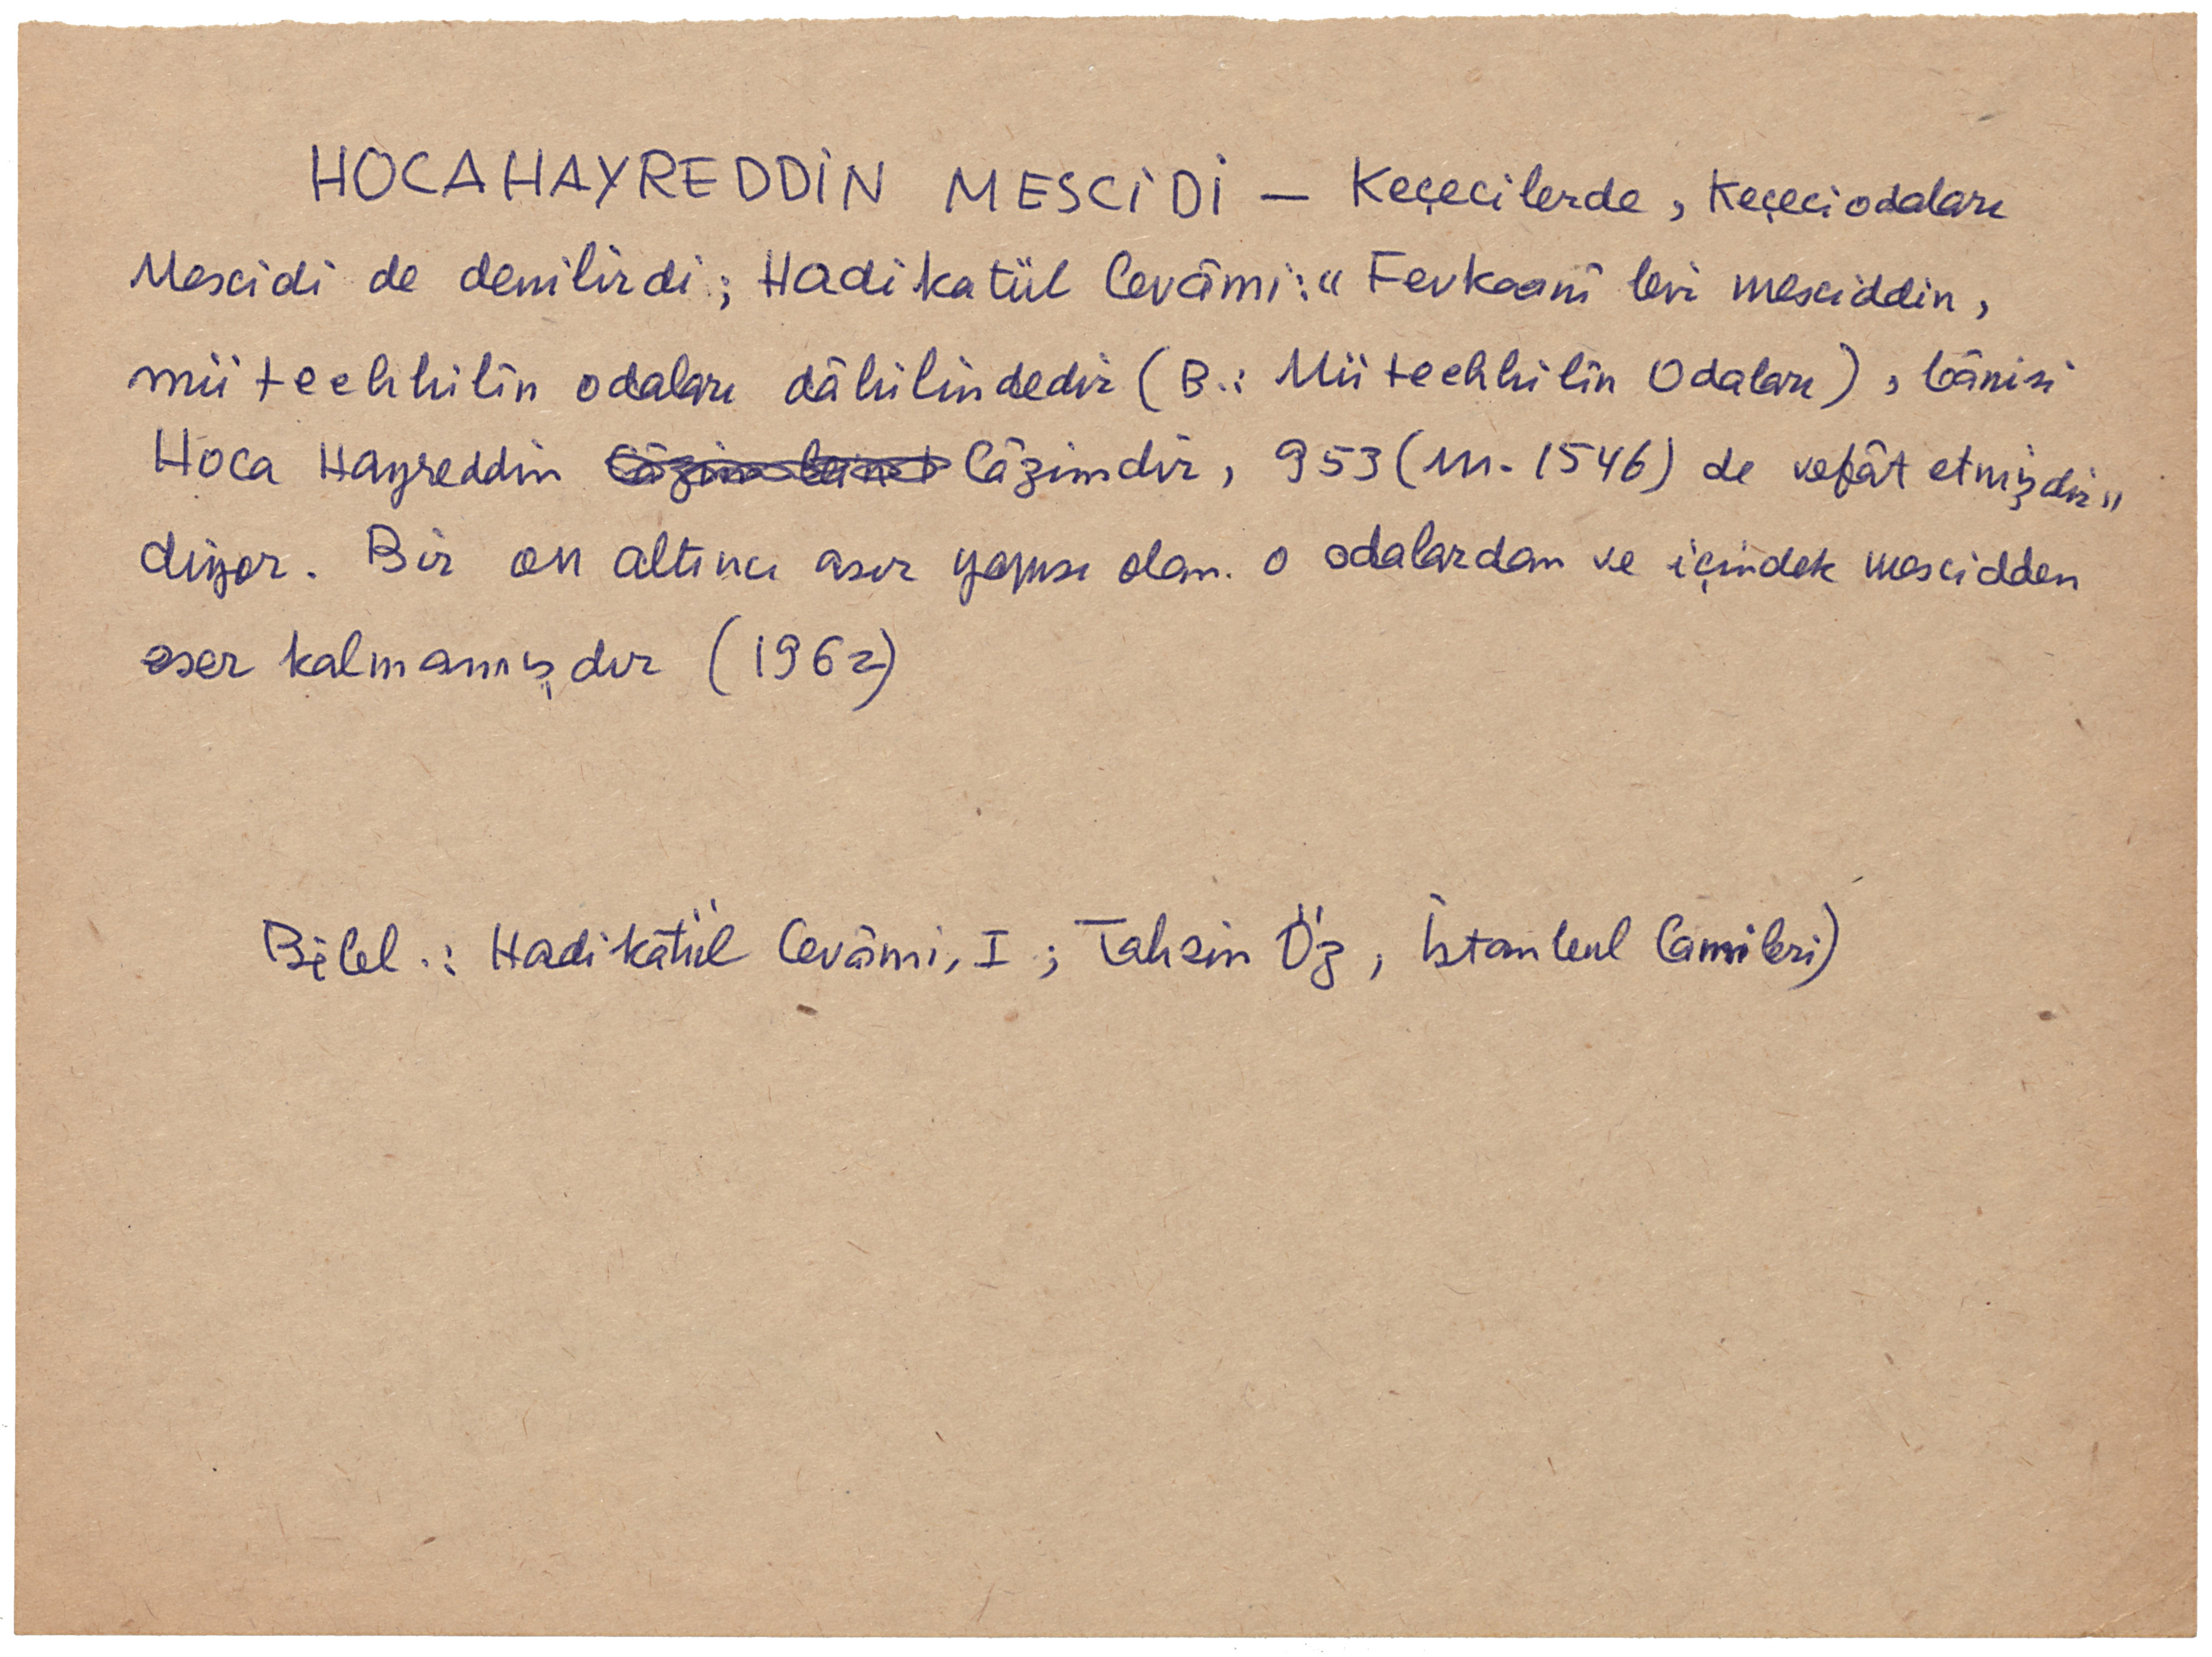 HOCAHAYREDDİN MESCİDİ — Keçecilerde, Keçeciodaları
Mescidi de denilirdi; Hadikatül Cevâmi: "Fevkaanî bir mesciddir,
müteehhilîn odaları dâhilindedir (B.: Müteehhilîn Odaları), bânisi
Hoca Hayreddin Câzimdir, 953 (m. 1546) de vefât etmişdir"
diyor. Bir on altıncı asır yapısı olan o odalardan ve içindek mescidden
eser kalmamışdır (1962)
Bibl.: Hadikatül Cevâmi, I; Tahsin Öz, İstanbul Camileri)